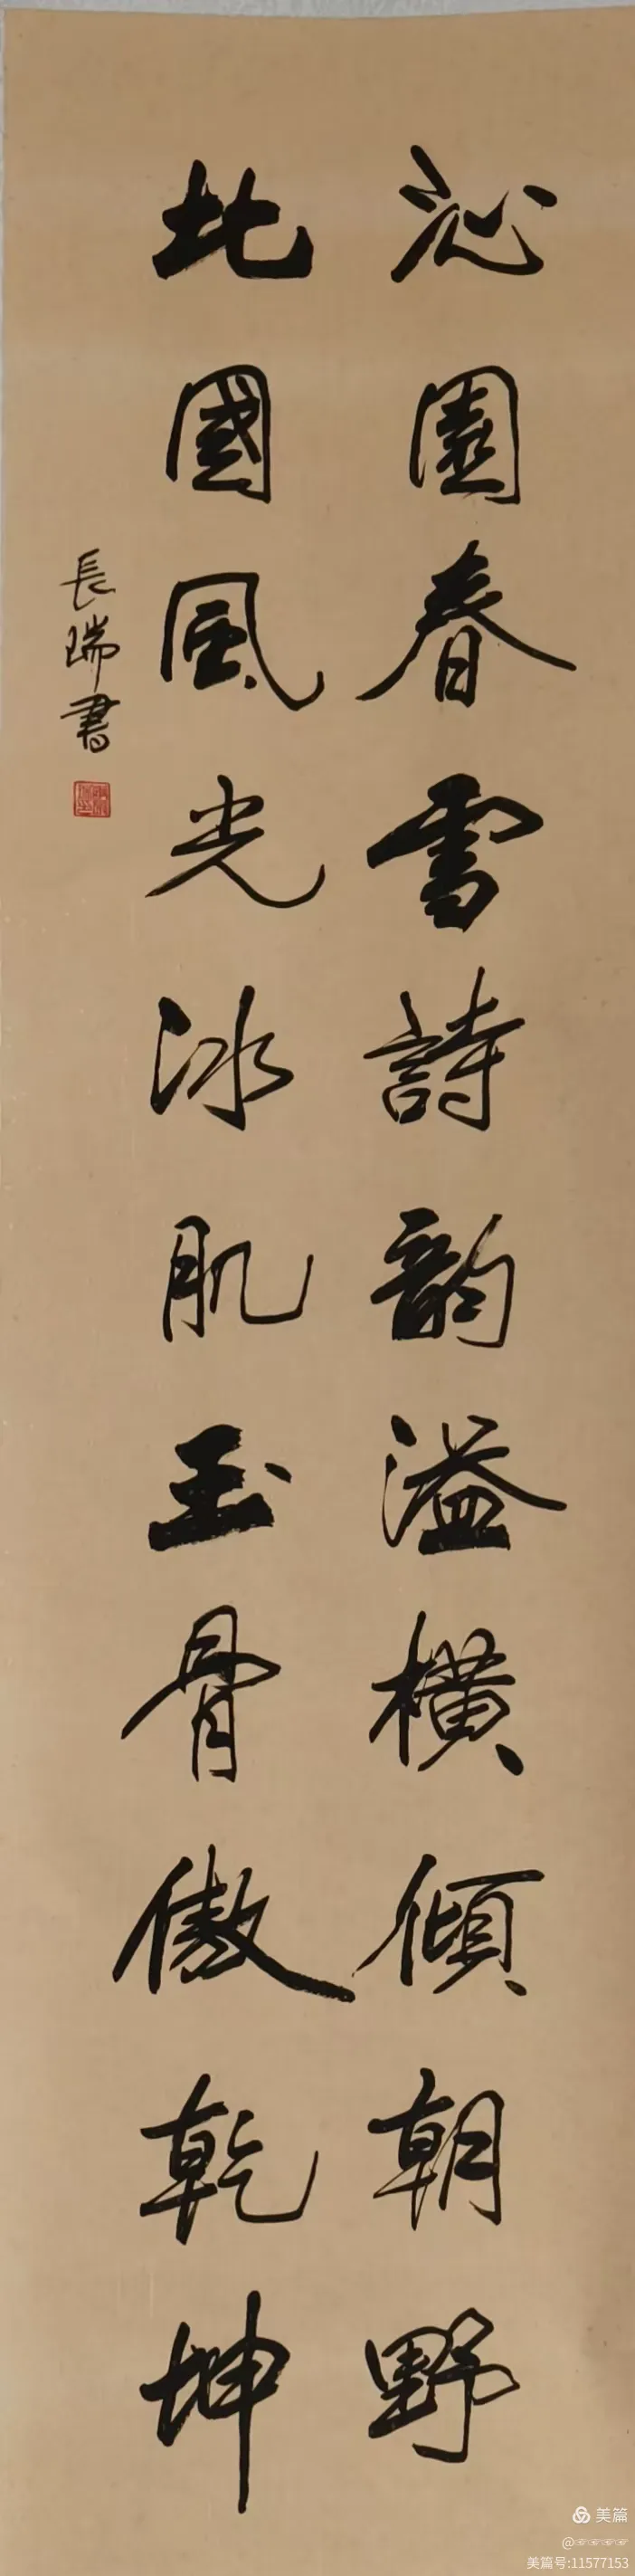 沁園春雪詩韵溢橫傾朝野
北國風光冰肌玉骨傲乾坤
長瑞書
美篇
@☞☞☞☞
美篇号:11577153